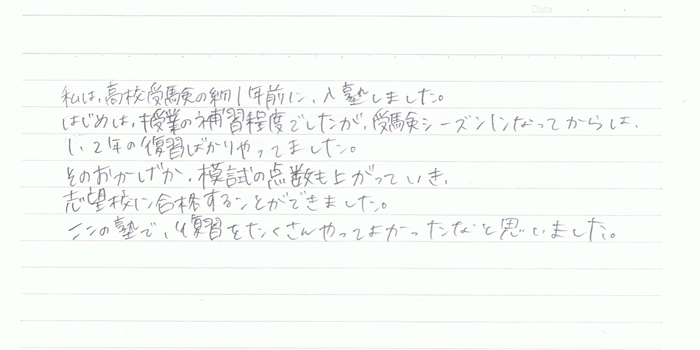 Date
私は、高校受験の約1年前に、入塾しました。
はじめは、授業の補習程度でしたが、受験シーズンになってからは、
1、2年の復習ばかりやってました。
そのおかげか、模試の点数も上がっていき、
志望校に合格することができました。
ここの塾で、復習をたくさんやってよかったなと思いました。